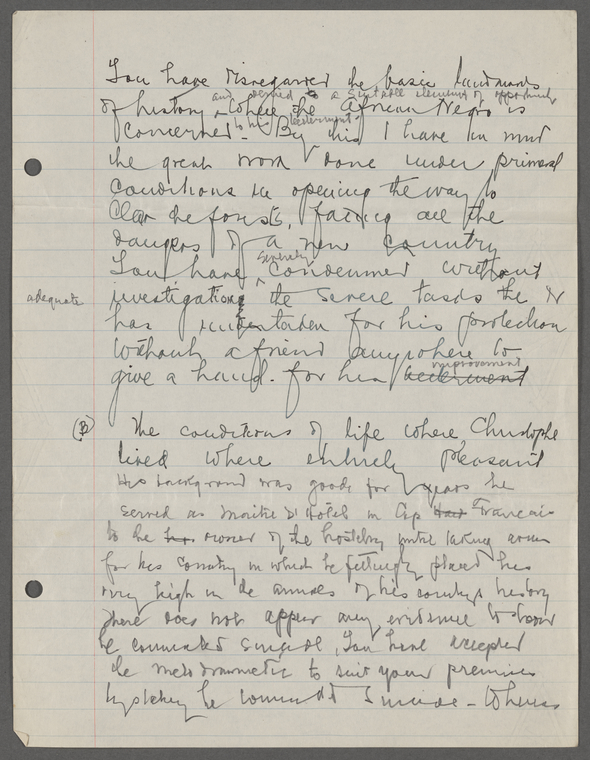 You have disregarded the basic landmarks
and denied to a suitable element of opportunity
of history, where the African Negro is
to his betterment.
concerned. By this I have in mind
the great work done under primeval
conditions in opening the way to
clear the forests, facing all the
dangers of a new country
severely
You have condemned without
adequate
investigations the severe tasks the N
has undertaken for his protection
without a friend anywhere to
improvement
give a hand. for his betterment
(B) The conditions of life where Christophe
lived where entirely pleasant
His background was good, for years he
served as Maitre D Hotel in Cap Francais
to the owner of the hostelry until taking arms
for his country in which he fittingly placed his
very high in the annals of his countrys history
There does not appear any evidence to show
he committed suicide, You have accepted
the melodramatic to suit your premises
by stating he commitd suicide - Whereas